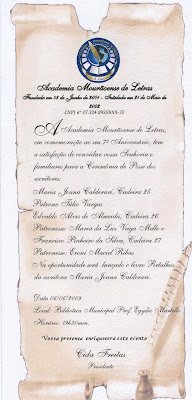 Academia Mourãoense de Letras
Fundada em 18 de Junho de 2001 - Instalada em 21 de Maio de
2002
A Academia Mourãoense de Letras,
em comemoração ao seu 7º Aniversário, tem
a satisfação de convidar Vossa Senhoria e
familiares para a Cerimônia de Posse dos
escritores:
Maria Joana Calderari, Cadeira 25
Patrono: Túlio Vargas
Edvaldo Alves de Almeida, Cadeira 26
Patronesse: Maria da Luz Veiga Mello e
Francisco Pinheiro da Silva, Cadeira 27
Patrono: Eroni Maciel Ribas
Na oportunidade será lançado o livro Retalhos,
da escritora Maria Joana Calderari.
Data 06/06/2009
Local: Biblioteca Municipal Prof. Egydio Martello
Horário: 19h30min.
Vossa presença enriquecerá este evento
Cida Freitas
Presidente